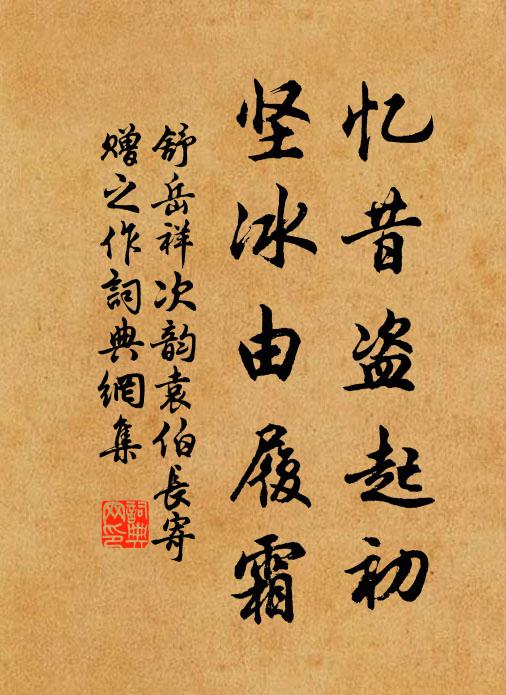 忆昔盗起初
坚冰由履霜
舒岳祥次韵袁伯长寄
赠之作詞典網集
詞典
网印